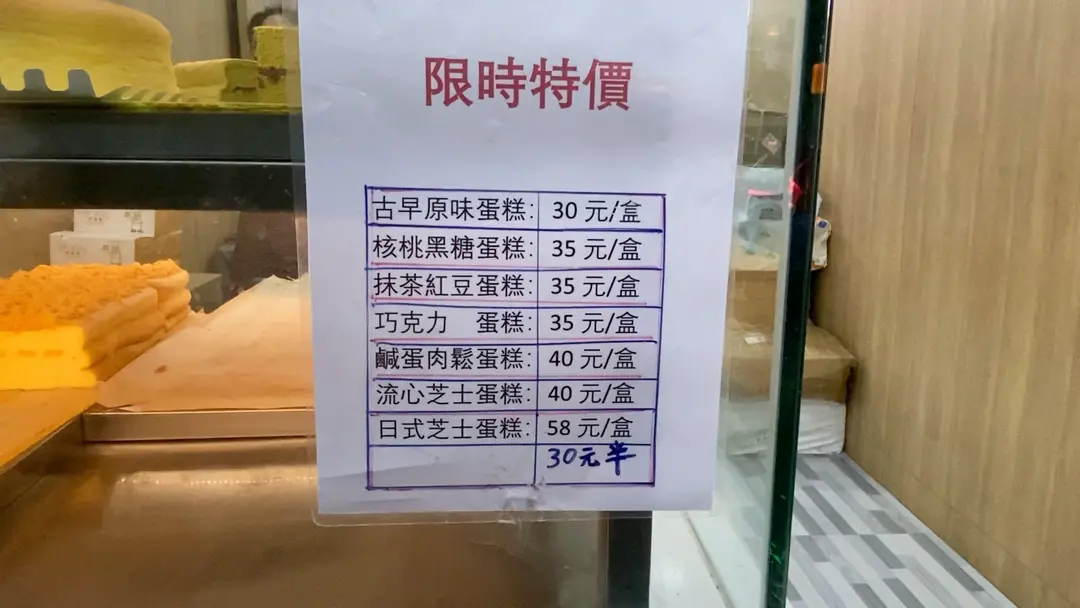 限時特價
古早原味蛋糕： 30 元/盒
核桃黑糖蛋糕： 35 元/盒
抹茶紅豆蛋糕： 35 元/盒
巧克力　蛋糕： 35 元/盒
鹹蛋肉鬆蛋糕： 40 元/盒
流心芝士蛋糕： 40 元/盒
日式芝士蛋糕： 58 元/盒
30元半